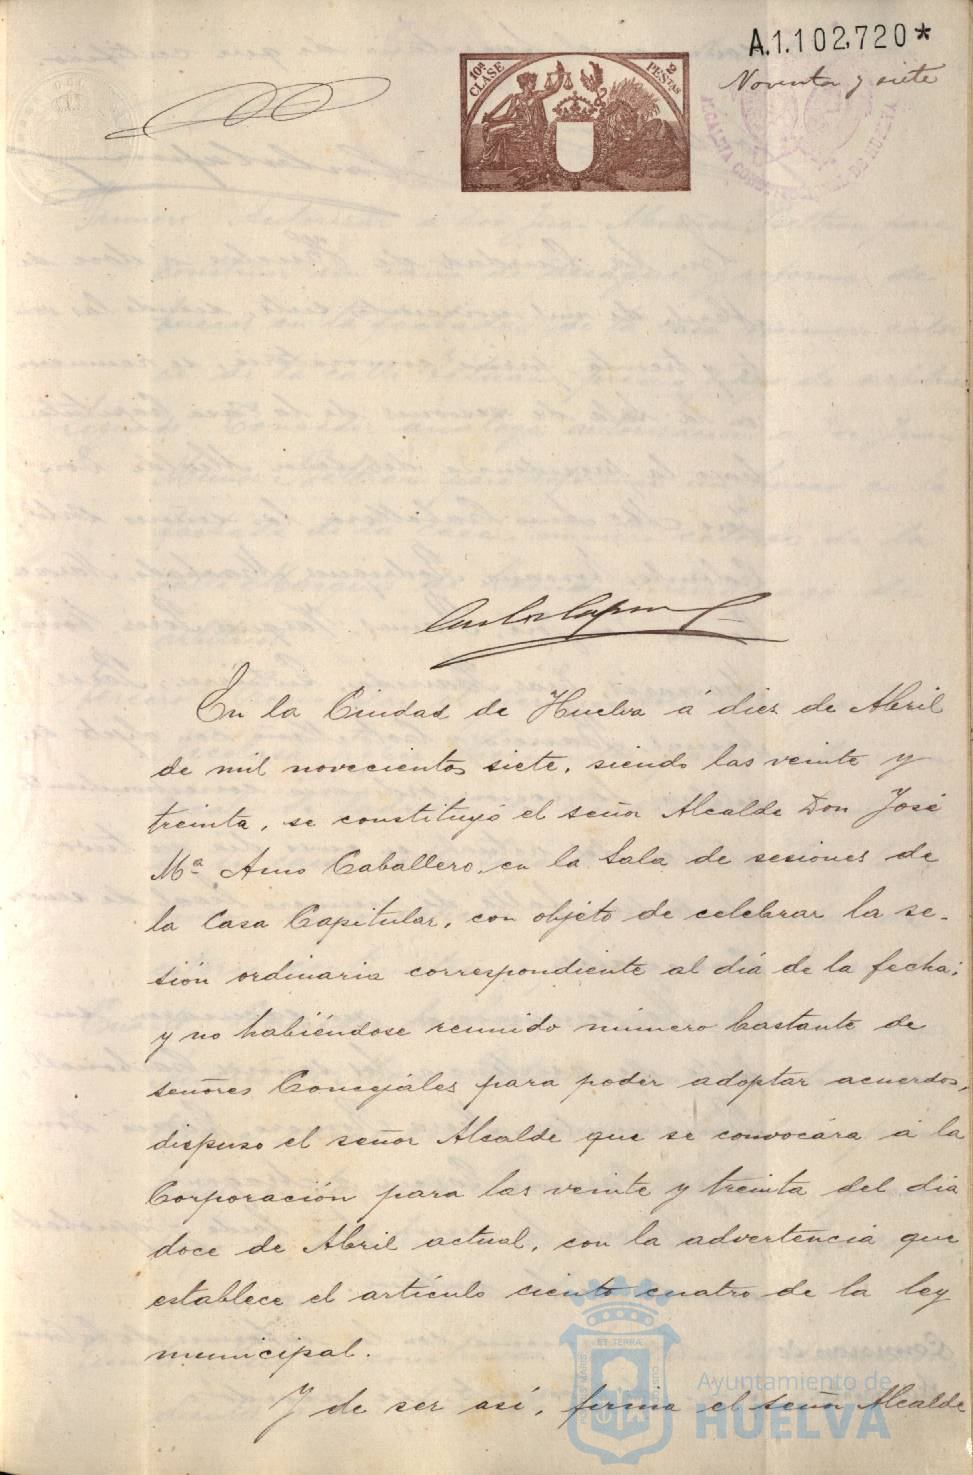 A.1.102.720*
Noventa y siete
10ª CLASE
2 PESTAS
ALCALDIA CONSTITUCIONAL DE HUELVA
En la Ciudad de Huelva á diez de Abril
de mil novecientos siete, siendo las veinte y
treinta, se constituyó el señor Alcalde Don José
Mª Amo Caballero, en la Sala de sesiones de
la Casa Capitular, con objeto de celebrar la se-
sión ordinaria correspondiente al día de la fecha;
y no habiéndose reunido número bastante de
señores Concejales para poder adoptar acuerdos,
dispuso el señor Alcalde que se convocára á la
Corporación para las veinte y treinta del día
doce de Abril actual, con la advertencia que
establece el artículo ciento cuatro de la ley
municipal.
Y de ser así, firma el señor Alcalde
Ayuntamiento de
HUELVA